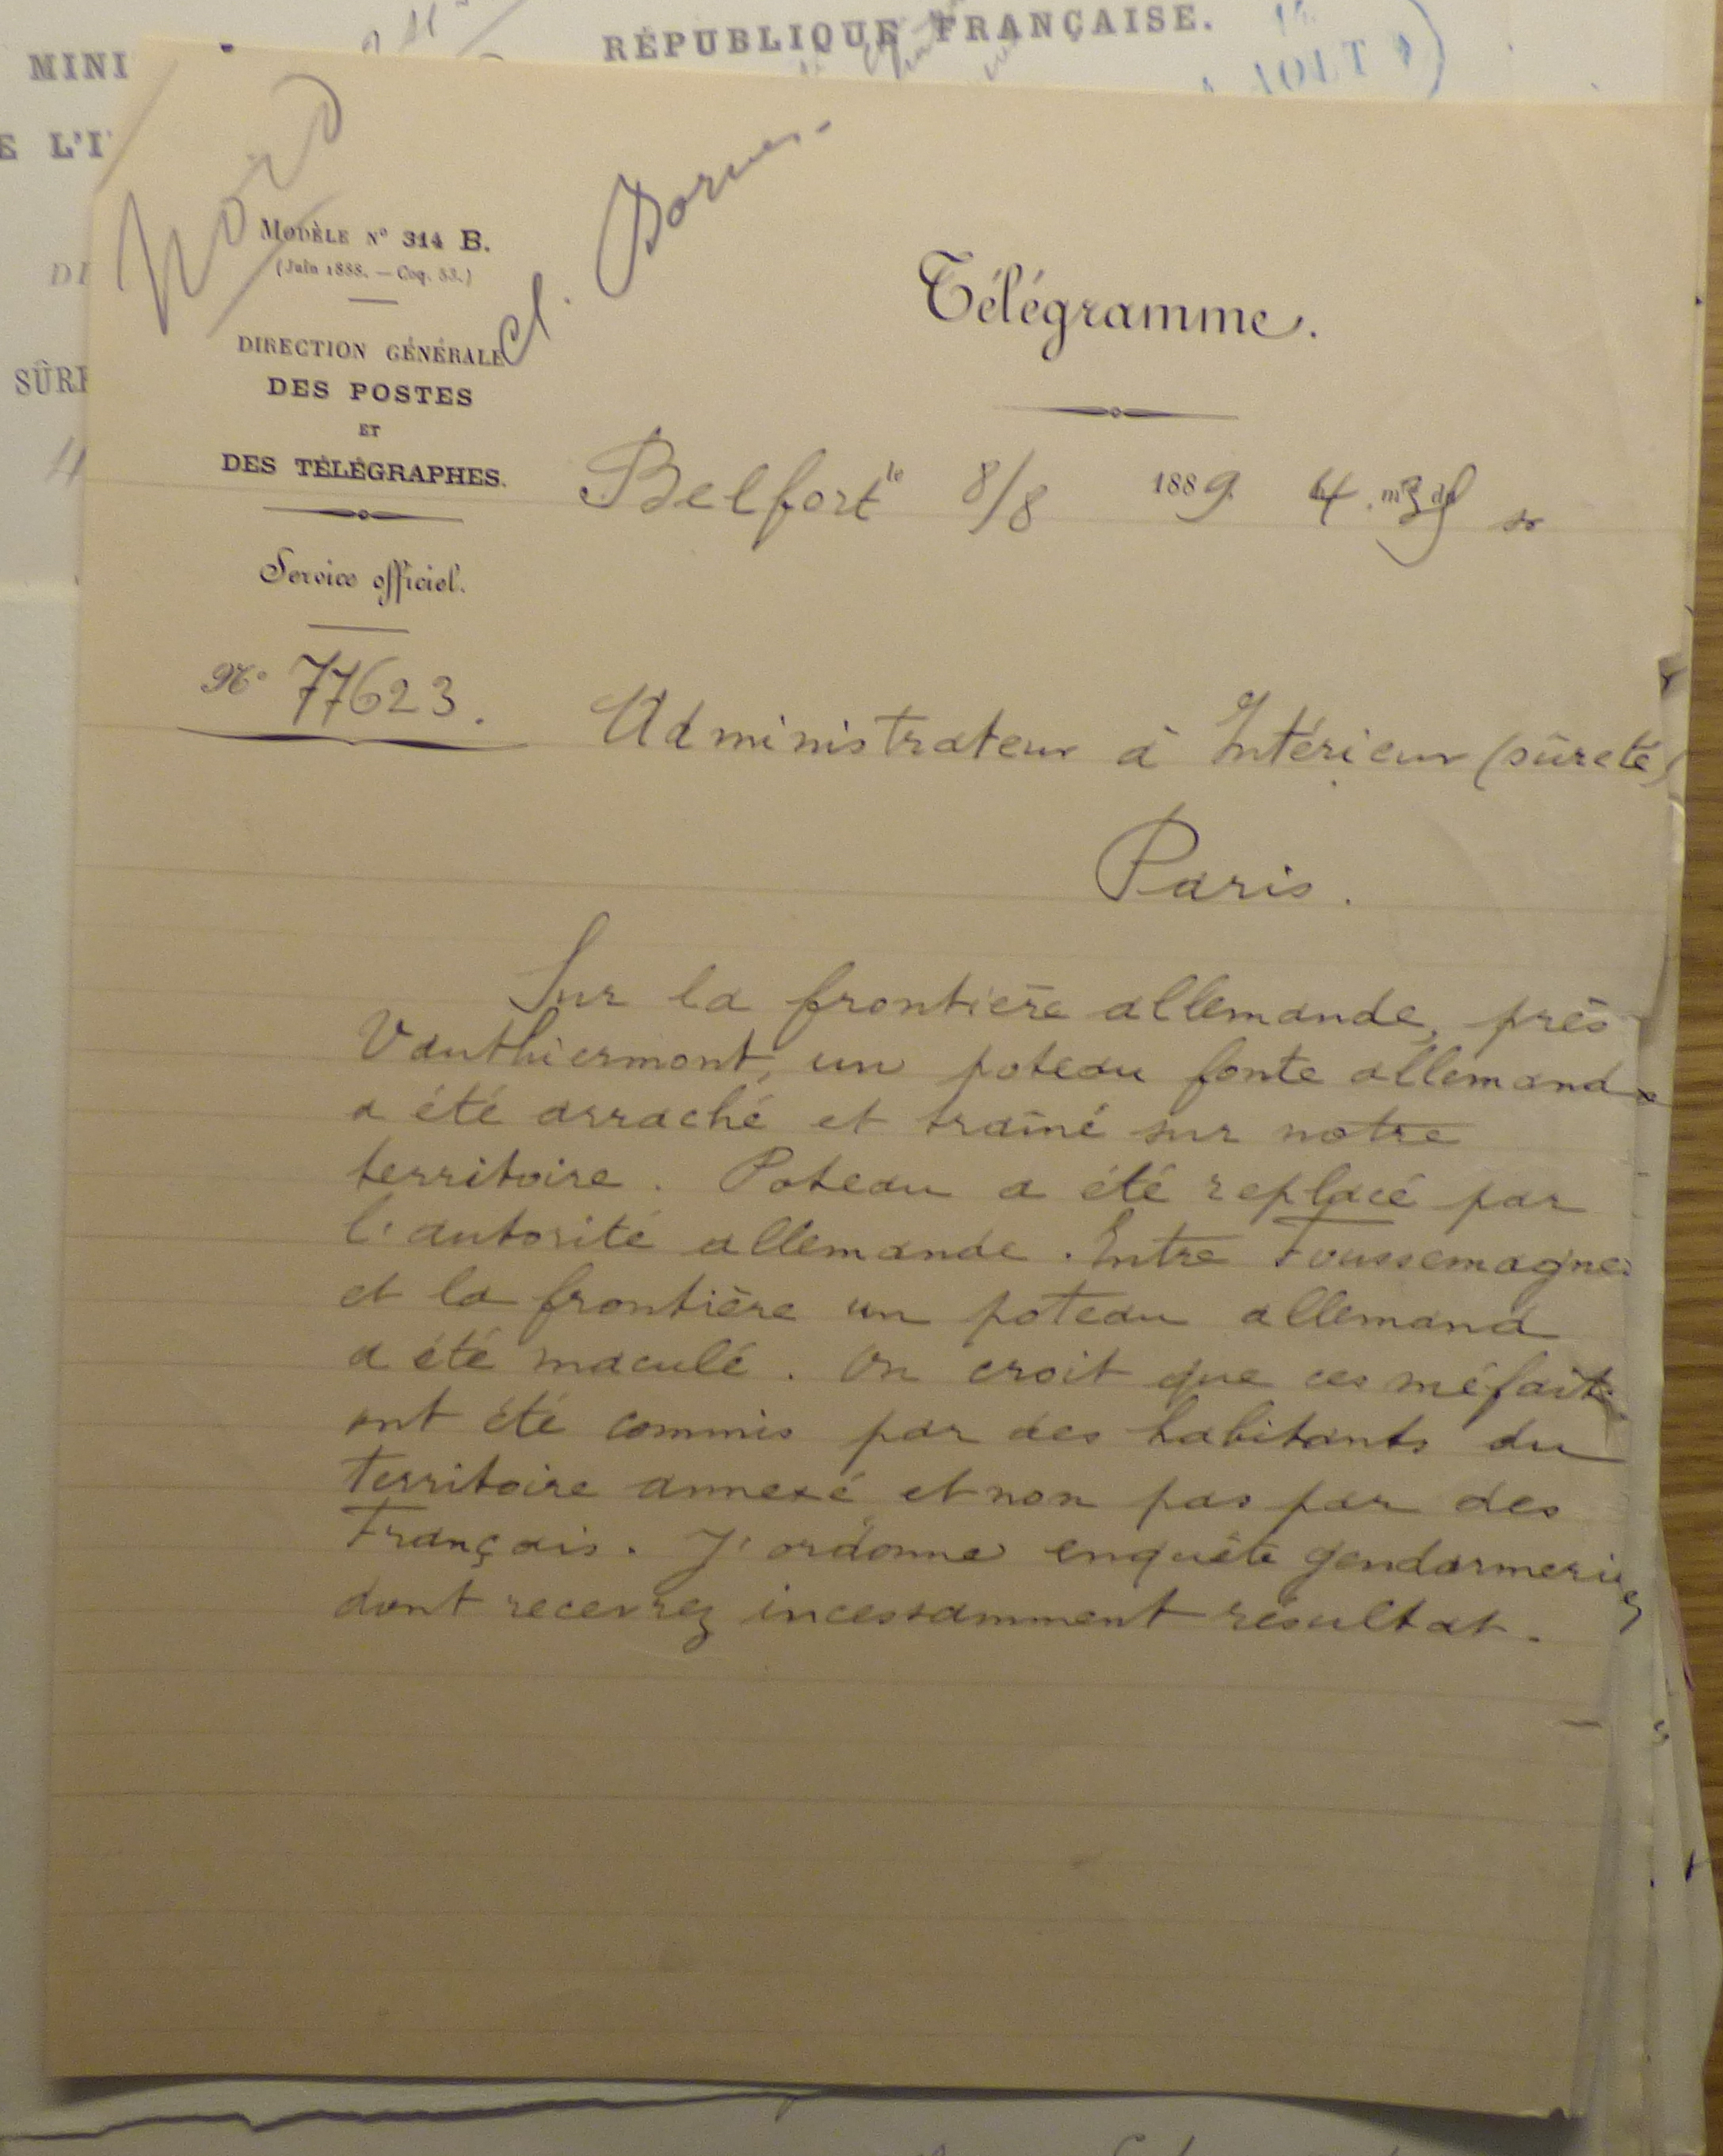 MINI
RÉPUBLIQUE FRANÇAISE.
AOUT
E L'I
DI
SÛRE
Nord
Cl. Bornes.
MODÈLE N° 314 B.
(Juin 1888. — Coq. 53.)
DIRECTION GÉNÉRALE
DES POSTES
ET
DES TÉLÉGRAPHES.
Service officiel.
N° 77623.
Télégramme.
Belfort le 8/8 1889. 4 h. m
Administrateur à Intérieur (sûreté)
Paris.
Sur la frontière allemande, près
Vauthiermont, un poteau fonte allemand
a été arraché et traîné sur notre
territoire. Poteau a été replacé par
l'autorité allemande. Entre Foussemagne
et la frontière un poteau allemand
a été maculé. On croit que ces méfaits
ont été commis par des habitants du
territoire annexé et non pas par des
Français. J'ordonne enquête gendarmerie
dont recevrez incessamment résultat.